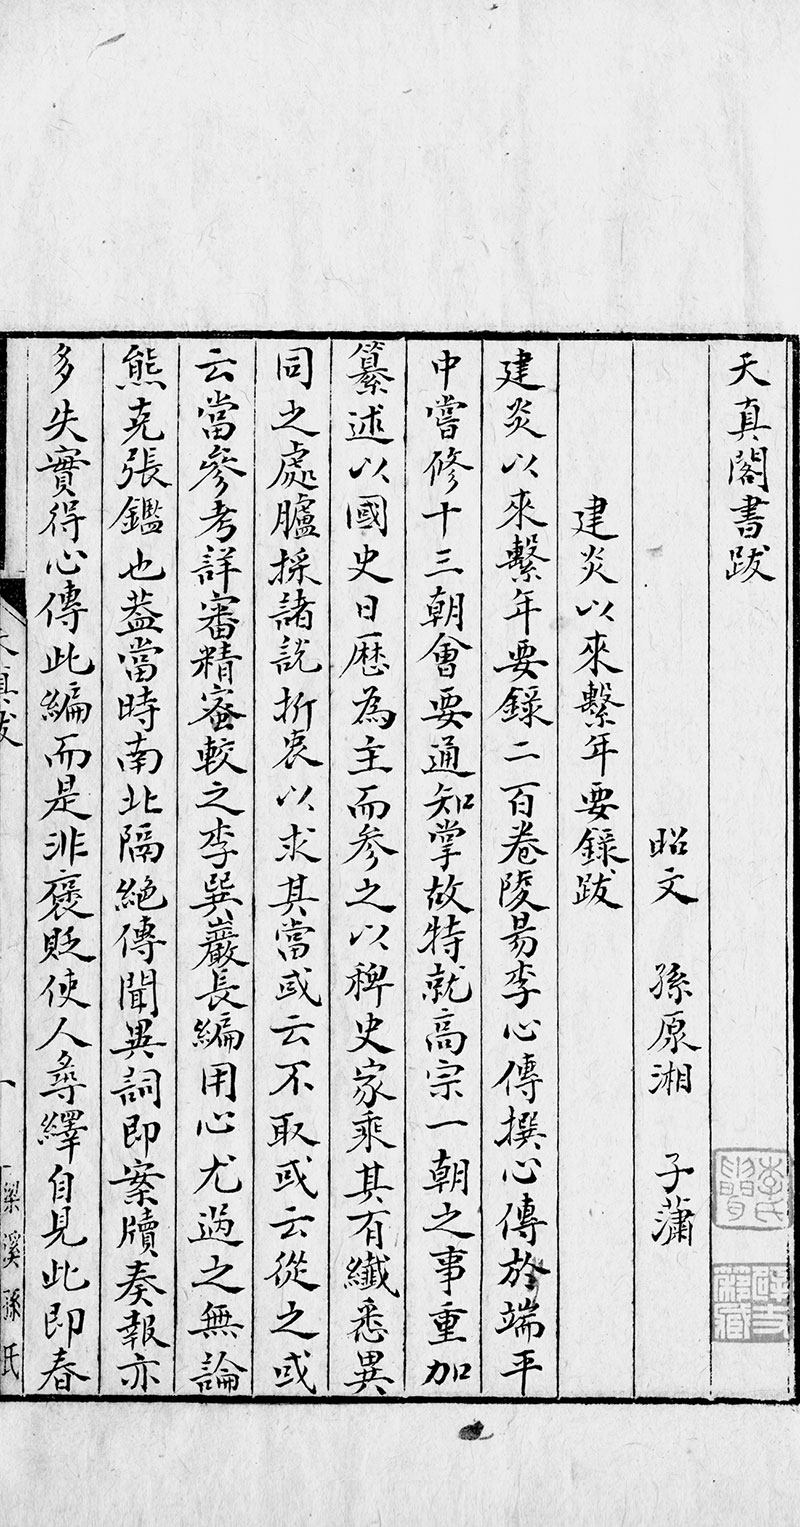 天真閣書跋
昭文 孫原湘 子瀟
建炎以來繫年要錄跋
建炎以來繫年要錄二百卷陵昜李心傳撰心傳於端平
中嘗修十三朝會要通知掌故特就高宗一朝之事重加
纂述以國史日歷為主而參之以稗史家乘其有纖悉異
同之處臚採諸說折衷以求其當或云不取或云從之或
云當參考詳審精宻較之李巽巖長編用心尤過之無論
熊克張鑑也葢當時南北隔絕傳聞異詞即案牘奏報亦
多失實得心傳此編而是非褒貶使人尋繹自見此即春
天真跋
一
梁溪孫氏